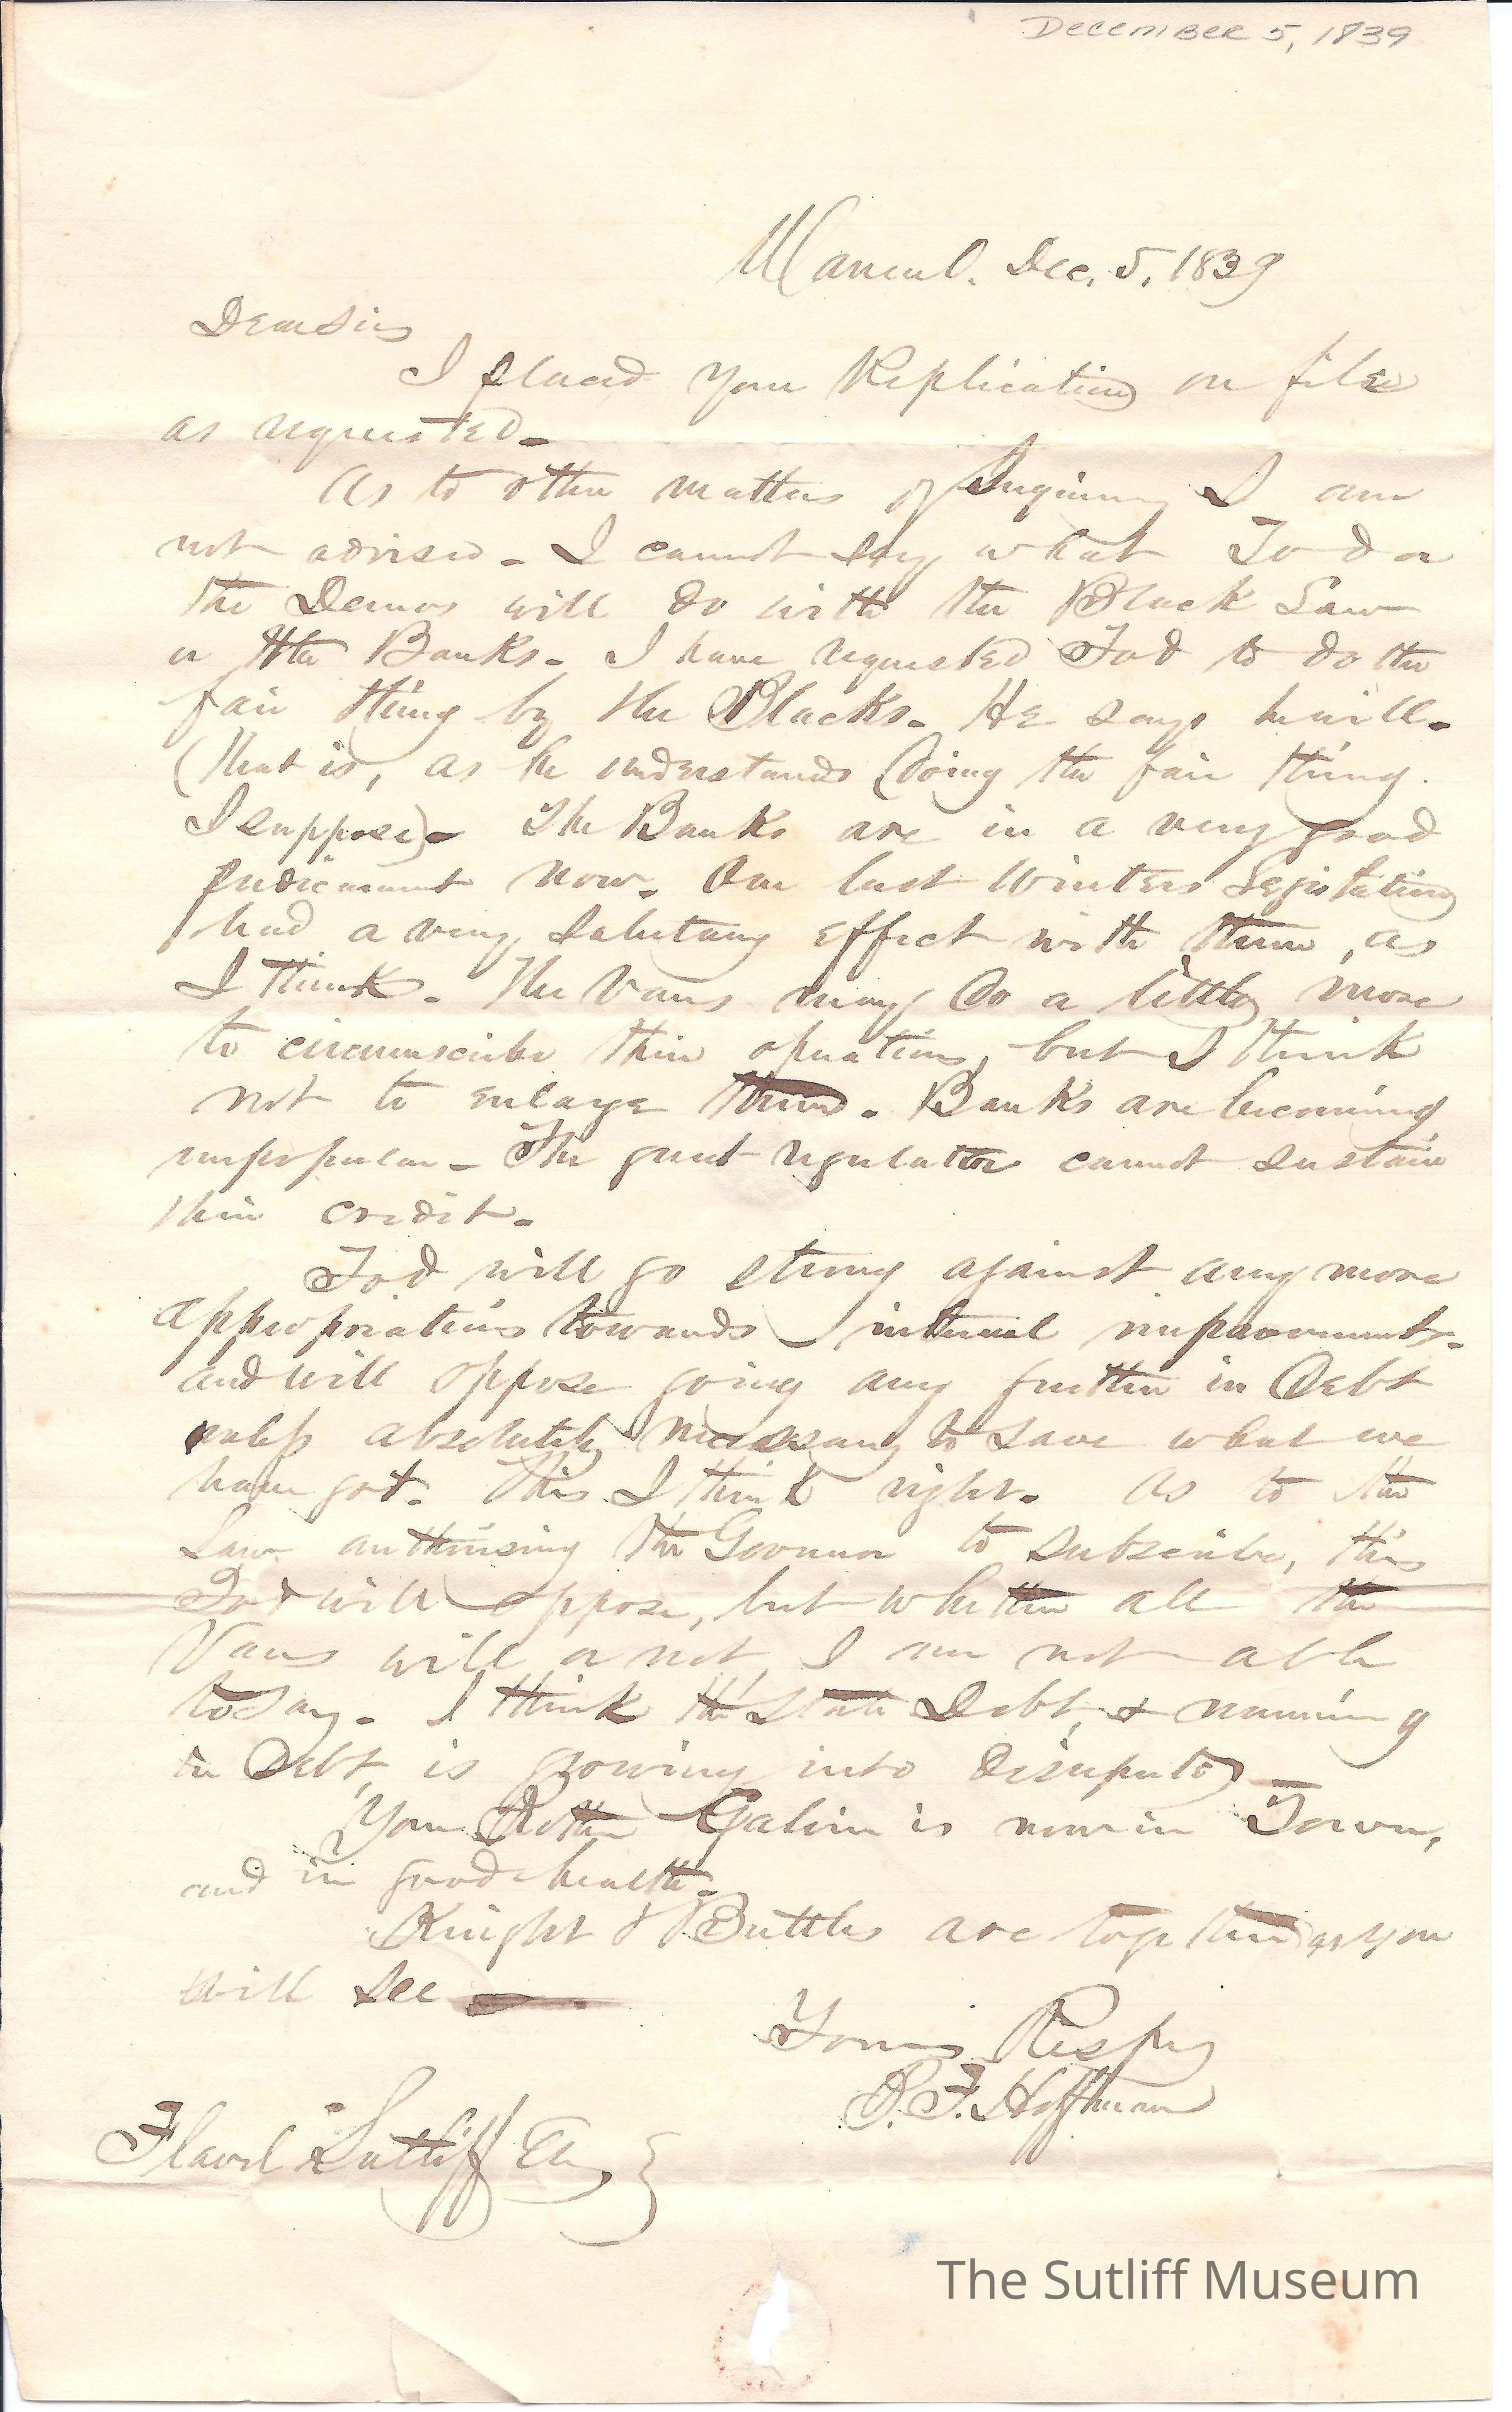 December 5, 1839
Warren O. Dec. 5, 1839
Dear Sir
I placed your Replication on file
as requested.
As to other matters of Inquiry I am
not advised - I cannot say what Tod or
the Demos will do with the Black Law
or the Banks. I have requested Tod to do the
fair thing by the Blacks. He says he will.
(that is, as he understands doing the fair thing.
I suppose) - The Banks are in a very good
predicament now. Our last Winters Legislation
had a very salutary effect with them, as
I think. The Vans may do a little more
to circumscribe their operations, but I think
not to enlarge them. Banks are becoming
unpopular - The great regulator cannot sustain
their credit.
Tod will go strong against any more
appropriations towards internal improvements.
and will oppose going any further in Debt
unless absolutely necessary to save what we
have got. This I think right. As to the
Law authorising the Governor to subscribe, this
Tod will oppose, but whether all the
Vans will or not, I am not able
to say. I think the State Debt, & running
in Debt, is growing into disrepute
Your Brother Calvin is now in Town,
and in good health.
Knight & Buttles are together as you
will see
Yours Respy
B. F. Hoffman
Flavel Sutliff Esq
The Sutliff Museum